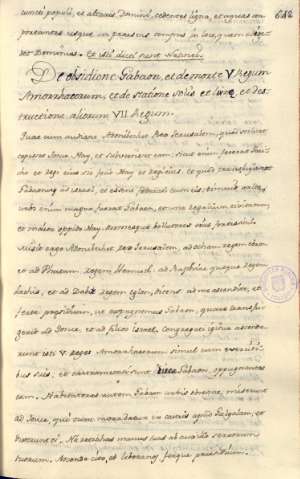 cuncti populi, et altaris Domini, cedentes ligna, et aquas com
portantes usque in praesens tempus in loco, quem elege
rit Dominus. Et isti dicti sunt
642
De obsidione Gabaon, et de morte V Regum
Amorrhaeorum, et de statione solis et lunae et des
tructione aliorum VII Regum.
Quae cum audisset Adonibezec Rex Jerusalem, quod scilicet
cepisset Josue Hay, et subvertisset eam; sicut enim fecerat
cho et regi eius sic fecit Hay et regi eius, et quod
Gabaonitae ad Israel, et essent foederati cum eis, timuit valde,
urbs enim magna fuerat Gabaon, et una regalium civitatum,
et maior oppido Hay, omnesque bellatores eius fortissimi
Misit ergo Adonibezec Rex Jerusalem, ad Oham regem
et ad Pharam Regem Hiemoth, ad Japhiae quoque Regem
Lachis, et ad Dabir Regem Eglon, dicens, ad me ascendite, et
ferte praesidium, ut expugnemus Gabaon, quare transfu
gerit ad Josue, et ad filios Israel, congregati igitur ascende
runt isti V Reges Amorrhaeorum simul cum exerciti
bus suis, et castrametati sunt circa Gabaon, oppugnantes
eam. Habitatores autem Gabaon urbis obsessae, miserunt
ad Josue, qui tunc morabatur in castris apud Galgalam, et
dixerunt ei. Ne retrahas manus tuas ab auxilio servorum
tuorum. Ascende cito, et libera nos, ferque praesidium.